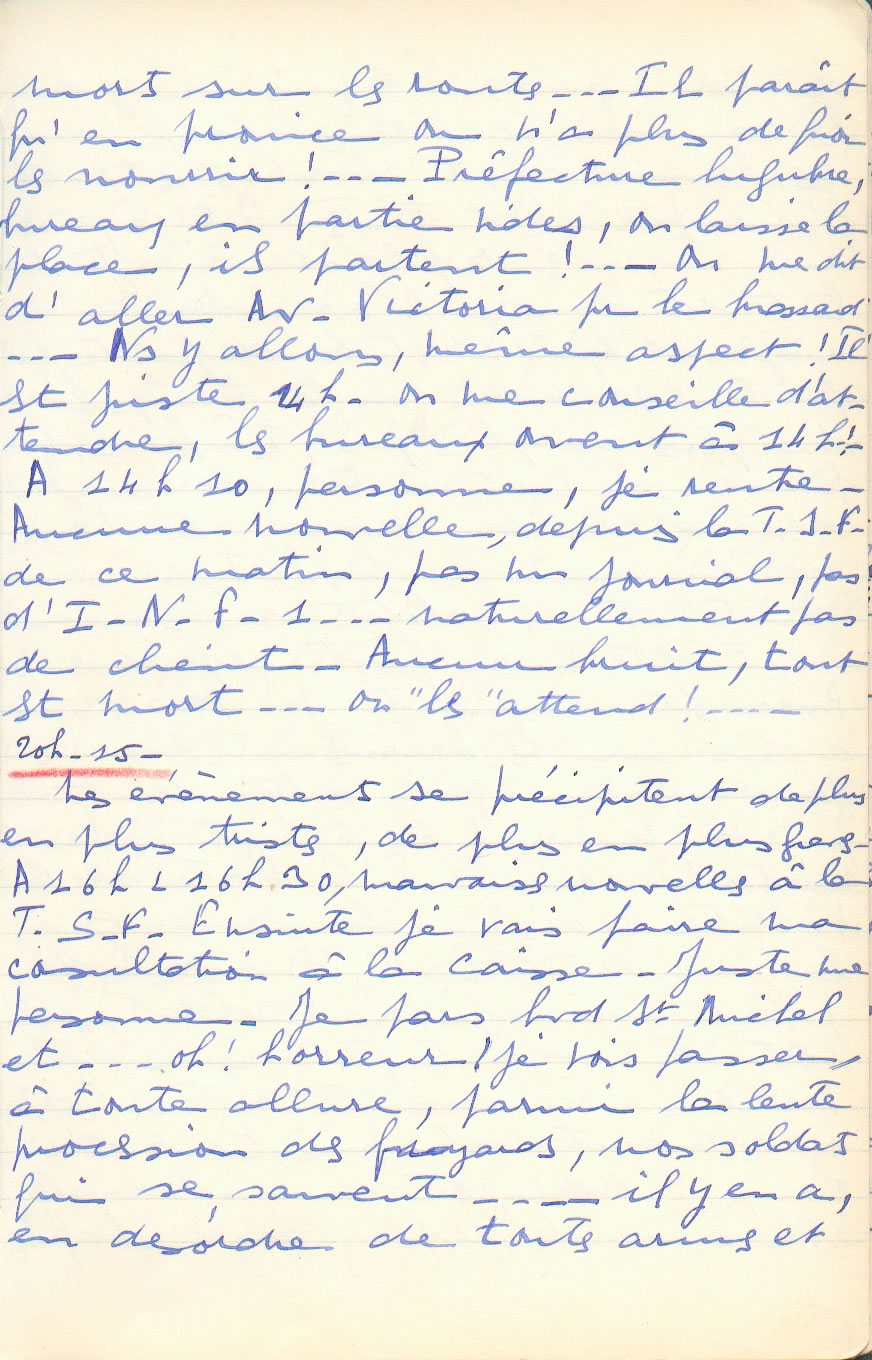 mort sur les routes --- Il paraît
qu'en province on n'a plus de quoi
les nourrir ! --- Préfecture lugubre,
bureaux en partie vides, on laisse la
place, ils partent ! --- On me dit
d'aller Av- Victoria pr le
--- Ns y allons, même aspect ! Il
est juste 14h- on me conseille d'at-
tendre, les bureaux ouvrent à 14h !-
A 14h 10, personne, je rentre -
Aucune nouvelle, depuis la T.S.F.
de ce matin, pas un journal, pas
d'I-N-F-1 --- naturellement pas
de client - Aucun bruit, tout
est mort --- on "les" attend ! ----
20h-15-
Les évènements se précipitent de plus
en plus tristes, de plus en plus graves-
A 16h 16h 30, mauvaises nouvelles à la
T.S.F- Ensuite je vais faire ma
consultation à la Caisse - Juste une
personne - Je pars bvd St Michel
et ---- oh ! horreur ! je vois passer,
à toute allure, parmi la lente
procession des fuyards, nos soldats
qui se sauvent ---- il y en a,
en desordre de toutes armes et